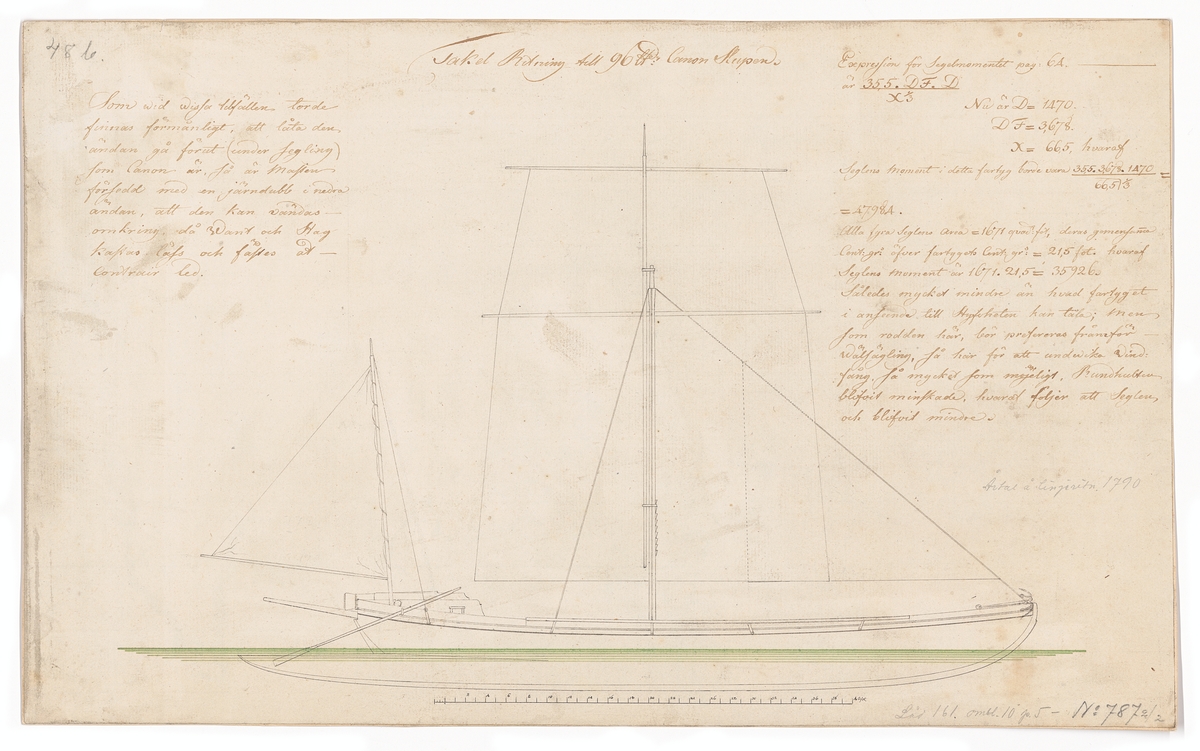 48 b.
Takel Ritning till 96 ℔: Canon Slupen.
Som wid wissa tilfällen torde
finnas förmånligt, att låta den
ändan gå förut (under Segling)
som Canon är, så är Massen
försedd med en järndubb i nedra
ändan, att den kan Vändas —
omkring, då Want och Stag
kastas låss och fästes åt —
Contrair led.
Expression för Segelmomentet pag. 64. —
är 355. DF. D
X⅓
Nu är D = 1470.
DF = 3,678.
X = 665, hvaraf
Seglens Moment i detta fartyg borde vara 355. 3,678. 1470 =
665)⅓
= 47984.
Alla fyra Seglens Area = 1671 qvad: fot, deras gemensama
Cent: gr: öfver fartygets Cent: gr: = 21,5 fot. hvaraf
Seglens Moment är 1671. 21,5 = 35926.
Således mycket mindre än hvad fartyget
i anseende till Styfheten kan tåla; men
som rodden här, bör prefereras framför
Wälsägling, så har för att undwika Vind-
fång, så mycket som möjeligt, Rundhulten
blifvit minskade, hvaraf följer att Seglen
och blifvit mindre.
1790
No: 787 2/2